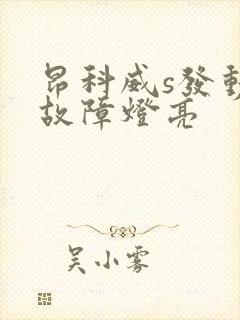 昂科威s發動
故障燈亮
吴小雾